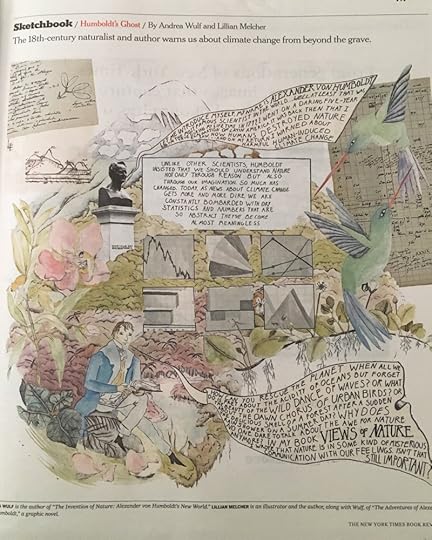 Sketchbook / Humboldt's Ghost / By Andrea Wulf and Lillian Melcher
The 18th-century naturalist and author warns us about climate change from beyond the grave.
MYSELF, MY NAME IS ALEXANDER VON HUMBOLDT
SCIENTIST IN THE WORLD
A DARING FIVE-YEAR
LATIN AMERICA. IT WAS BACK THEN THAT I
HOW HUMANS DESTROYED NATURE
WARNED ABOUT
HARMFUL HUMAN-INDUCED
CLIMATE CHANGE
UNLIKE OTHER SCIENTISTS, HUMBOLDT
INSISTED THAT WE SHOULD UNDERSTAND NATURE
NOT ONLY THROUGH REASON BUT ALSO
THROUGH OUR IMAGINATION. SO MUCH HAS
CHANGED. TODAY, AS NEWS ABOUT CLIMATE CHANGE
GETS MORE AND MORE DIRE WE ARE
CONSTANTLY BOMBARDED WITH DRY
STATISTICS AND NUMBERS THAT ARE
SO ABSTRACT THEY'VE BECOME
ALMOST MEANINGLESS
HOW CAN YOU RESCUE THE PLANET WHEN ALL WE
ABOUT THE ACIDITY OF OCEANS BUT FORGET
THE WILD DANCE OF WAVES? OR WHAT
THE DAWN CHORUS OF URBAN BIRDS? OR
SMELL OF A FOREST AFTER A SUDDEN
ON A SUMMER DAY? WHY DOES
NO ONE DARE TO TALK ABOUT THE AWE FOR NATURE
ANYMORE? IN MY BOOK VIEWS OF NATURE
THAT NATURE IS IN SOME KIND OF MYSTERIOUS
COMMUNICATION WITH OUR FEELINGS. ISN'T THAT
STILL IMPORTANT?
WULF is the author of "The Invention of Nature: Alexander von Humboldt's New World." LILLIAN MELCHER is an illustrator and the author, along with Wulf, of "The Adventures of
," a graphic novel.
THE NEW YORK TIMES BOOK